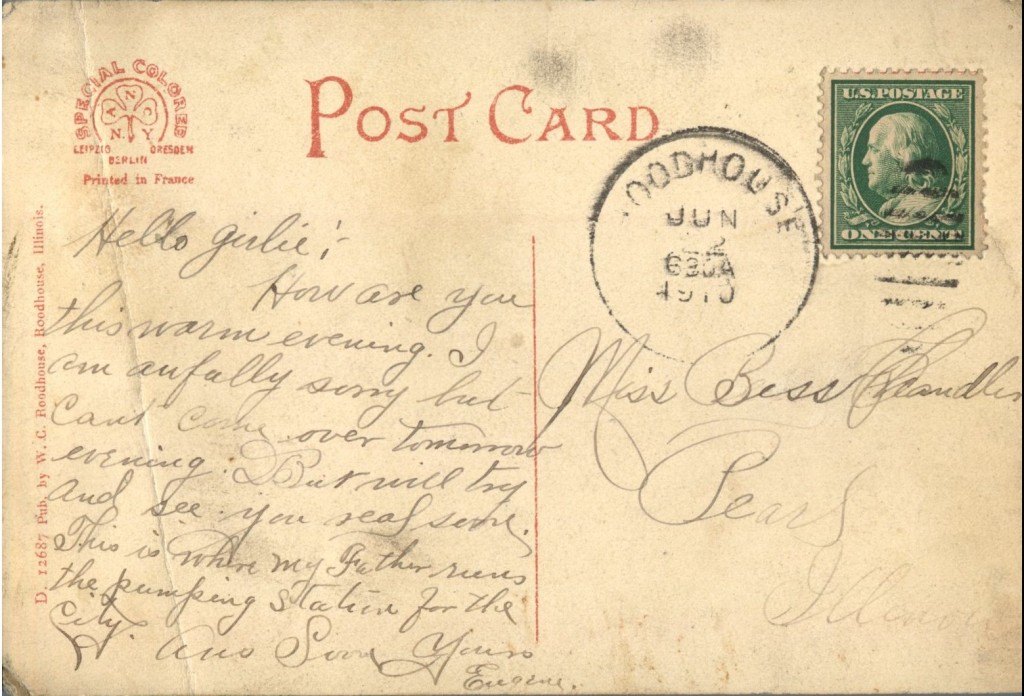 SPECIAL COLORED
ANC
N. Y
LEIPZIG DRESDEN
BERLIN
Printed in France
POST CARD
U.S. POSTAGE
ONE CENT
ROODHOUSE
JUN
630A
1910
D. 12687 Pub. by W. C. Roodhouse, Roodhouse, Illinois.
Hello girlie!-
How are you
this warm evening. I
am anfully sorry but
can't come over tomorrow
evening. But will try
and see you real soon.
This is where my Father runs
the pumping station for the
City.
Soon Yours
Eugene.
Miss Bess Chandler
Pearl
Illinois